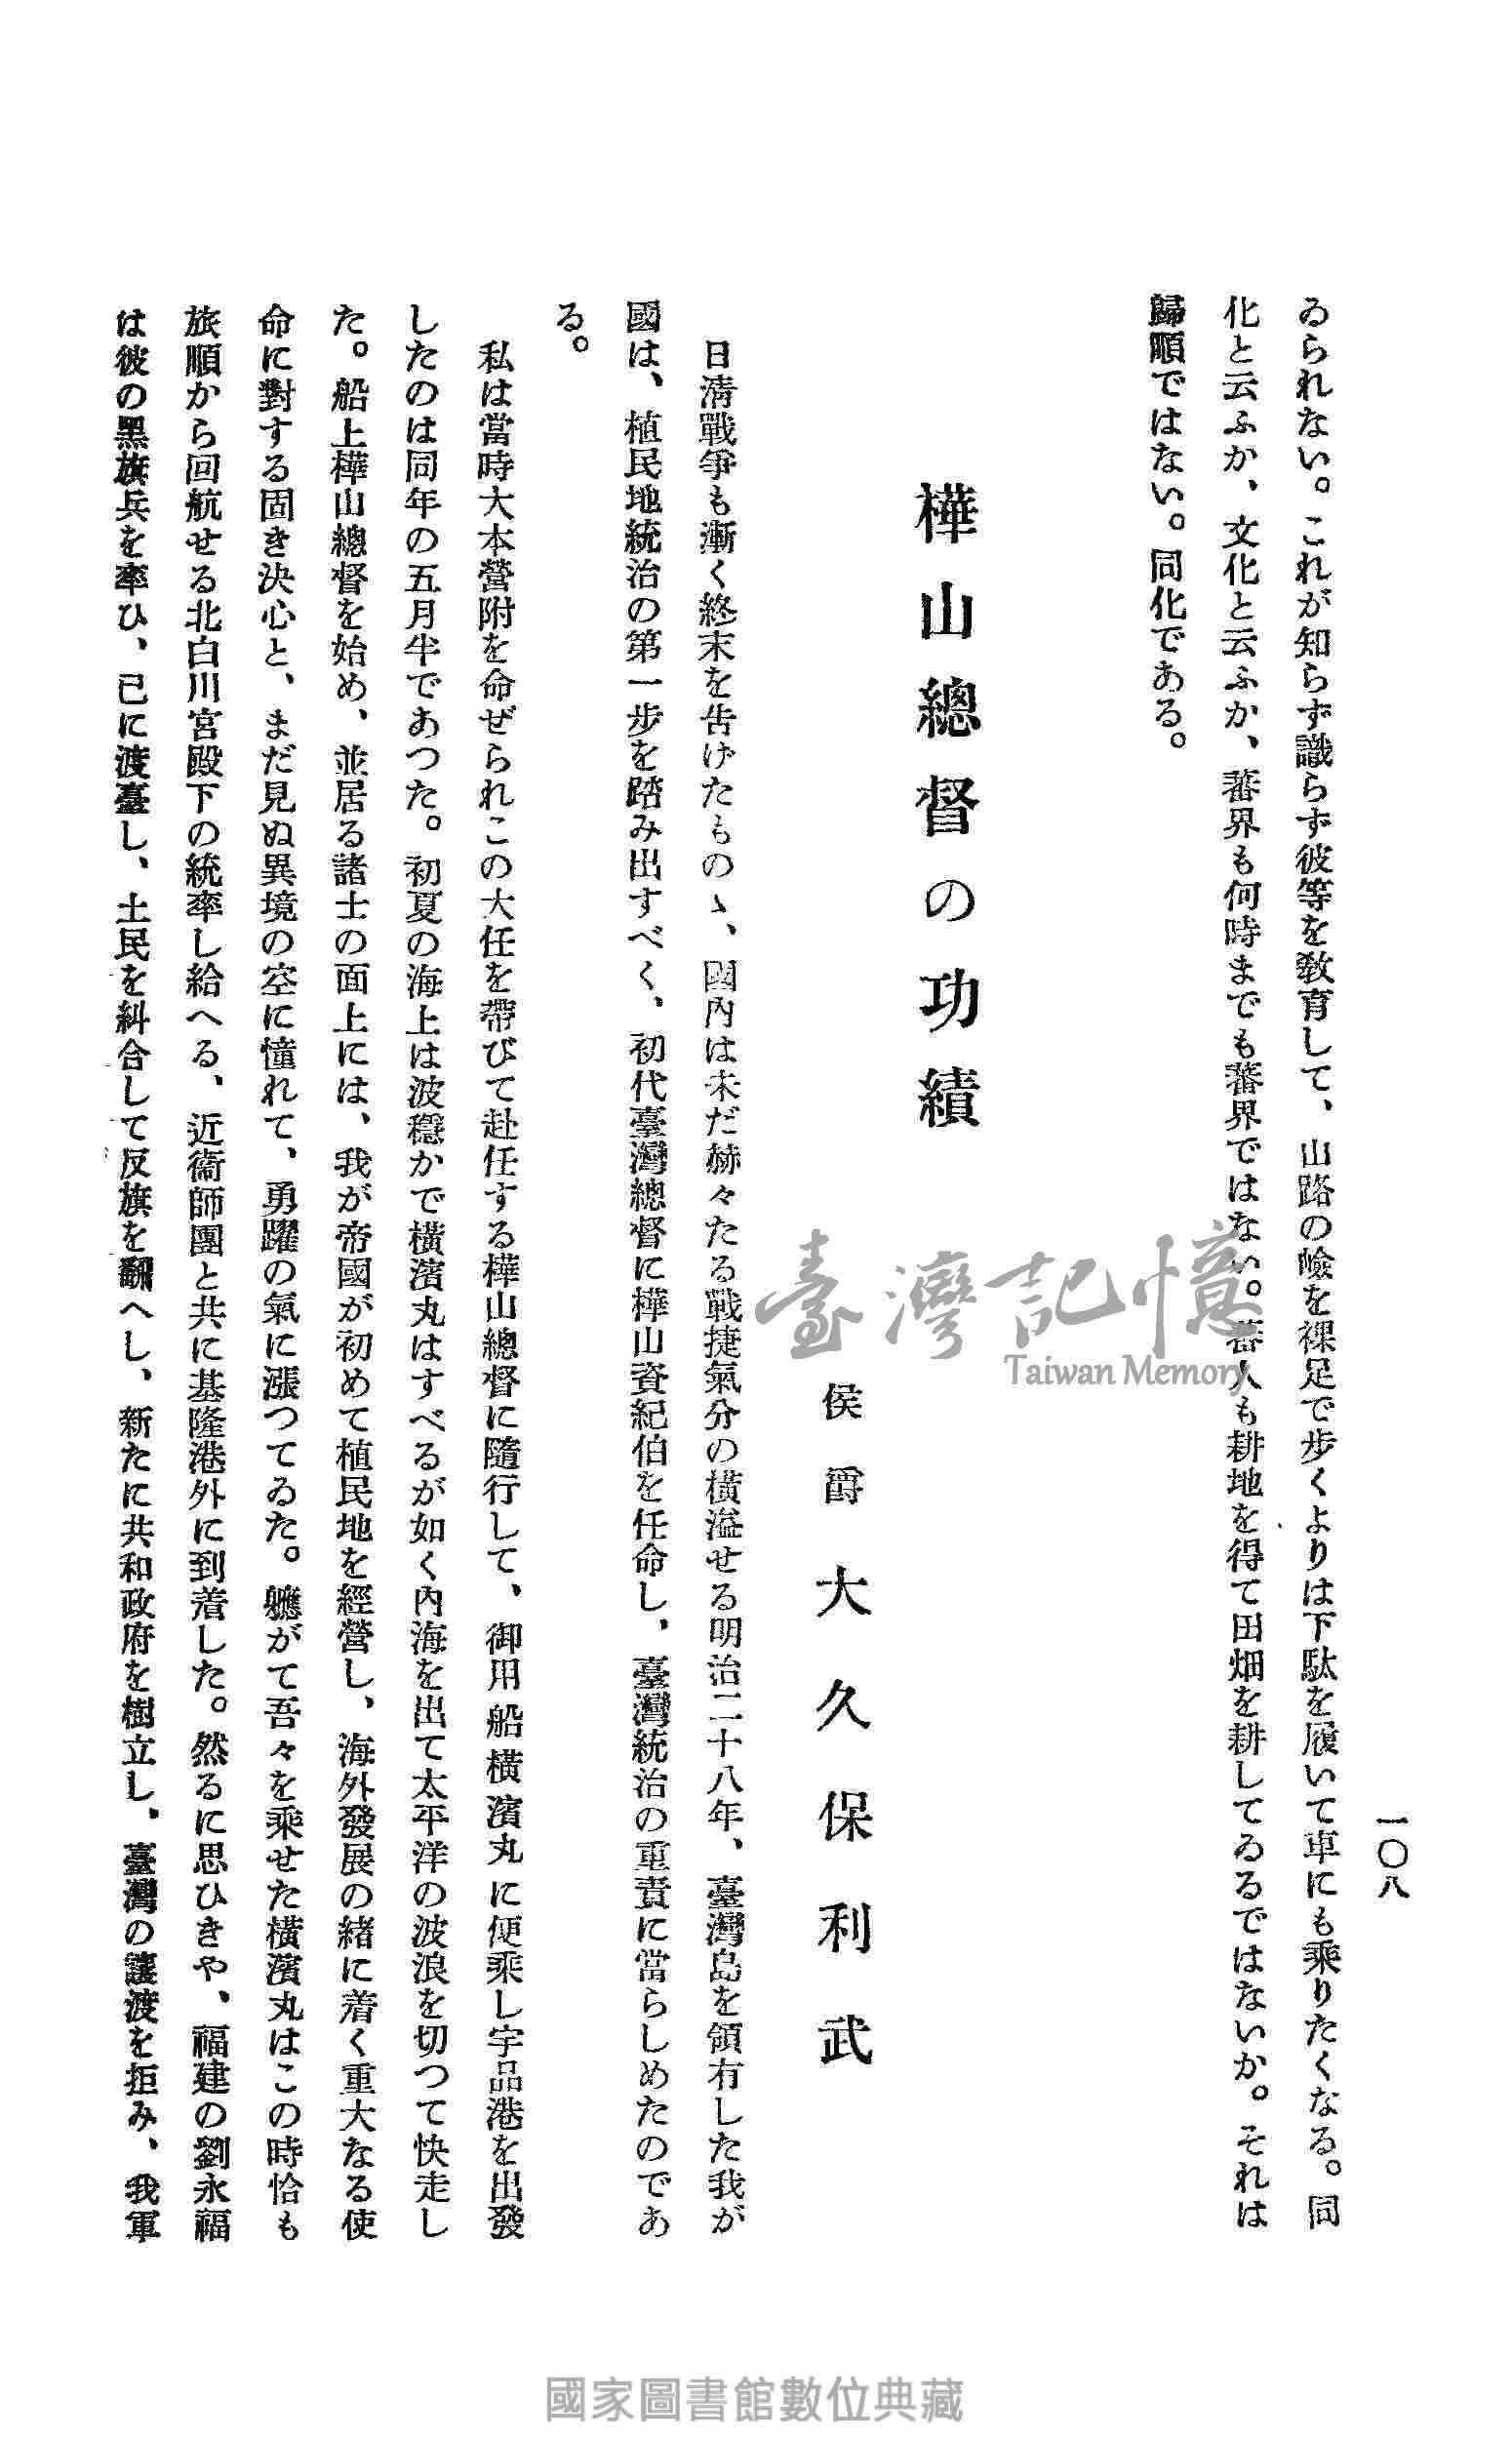 一〇八
ゐられない。これが知らず識らず彼等を敎育して、山路の嶮を裸足で步くよりは下駄を履いて車にも乘りたくなる。同
化と云ふか、文化と云ふか、蕃界も何時までも蕃界ではない。蕃人も耕地を得て田畑を耕してゐるではないか。それは
歸順ではない。同化である。
樺山總督の功績
侯爵 大久保利武
日淸戰爭も漸く終末を吿げたものゝ、國內は未だ赫々たる戰捷氣分の橫溢せる明治二十八年、臺灣島を領有した我が
國は、植民地統治の第一步を踏み出すべく、初代臺灣總督に樺山資紀伯を任命し、臺灣統治の重責に當らしめたのであ
る。
私は當時大本營附を命ぜられこの大任を帶びて赴任する樺山總督に隨行して、御用船橫濱丸に便乘し宇品港を出發
したのは同年の五月半であつた。初夏の海上は波穩かで橫濱丸はすべるが如く內海を出て太平洋の波浪を切つて快走し
た。船上樺山總督を始め、並居る諸士の面上には、我が帝國が初めて植民地を經營し、海外發展の緖に着く重大なる使
命に對する固き決心と、まだ見ぬ異境の空に憧れて、勇躍の氣に漲つてゐた。軈がて吾々を乘せた橫濱丸はこの時恰も
旅順から回航せる北白川宮殿下の統率し給へる、近衞師團と共に基隆港外に到着した。然るに思ひきや、福建の劉永福
は彼の黑旗兵を率ひ、已に渡臺し、土民を糾合して反旗を飜へし、新たに共和政府を樹立し、臺灣の讓渡を拒み、我軍
臺灣記憶
Taiwan Memory
國家圖書館數位典藏